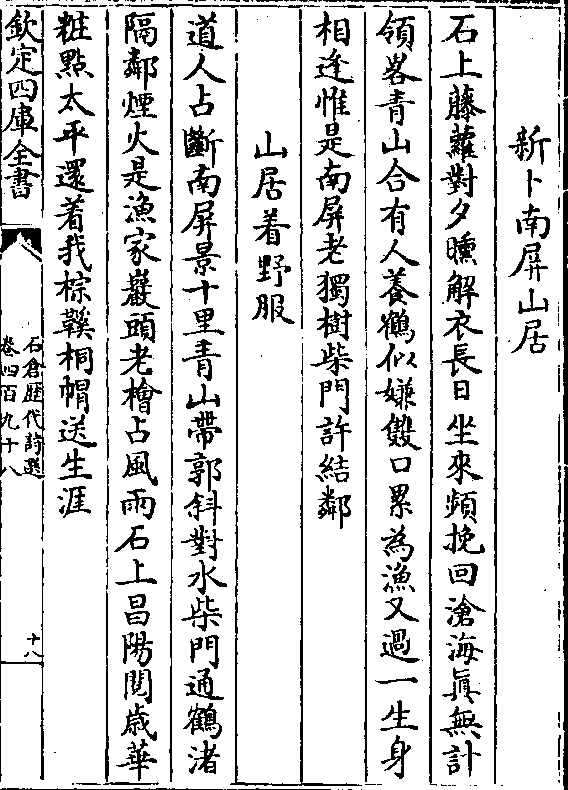 新卜南屏山居
石上藤蘿對夕曛解衣長日坐來頻挽回滄海眞無計
領畧青山合有人養鶴似嫌雙口累為漁又過一生身
相逢惟是南屏老獨樹柴門許結鄰
山居着野服
道人占斷南屏景十里青山帶郭斜對水柴門通鶴渚
隔鄰煙火是漁家巖頭老檜占風雨石上昌陽閱歲華
粧點太平還着我棕鞵桐帽送生涯
欽定四庫全書
石倉歴代詩選
卷四百九十八
十八